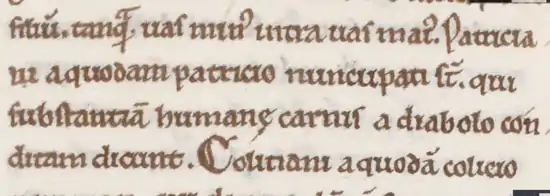 filiū. tanq̄ uas minꝰ intra uas maiꝰ. Patricia
ni a quodam patricio nuncupati st̄. qui
substantiā humanę carnis a diabolo con
ditam dicunt. Colitiani a quodā colicio